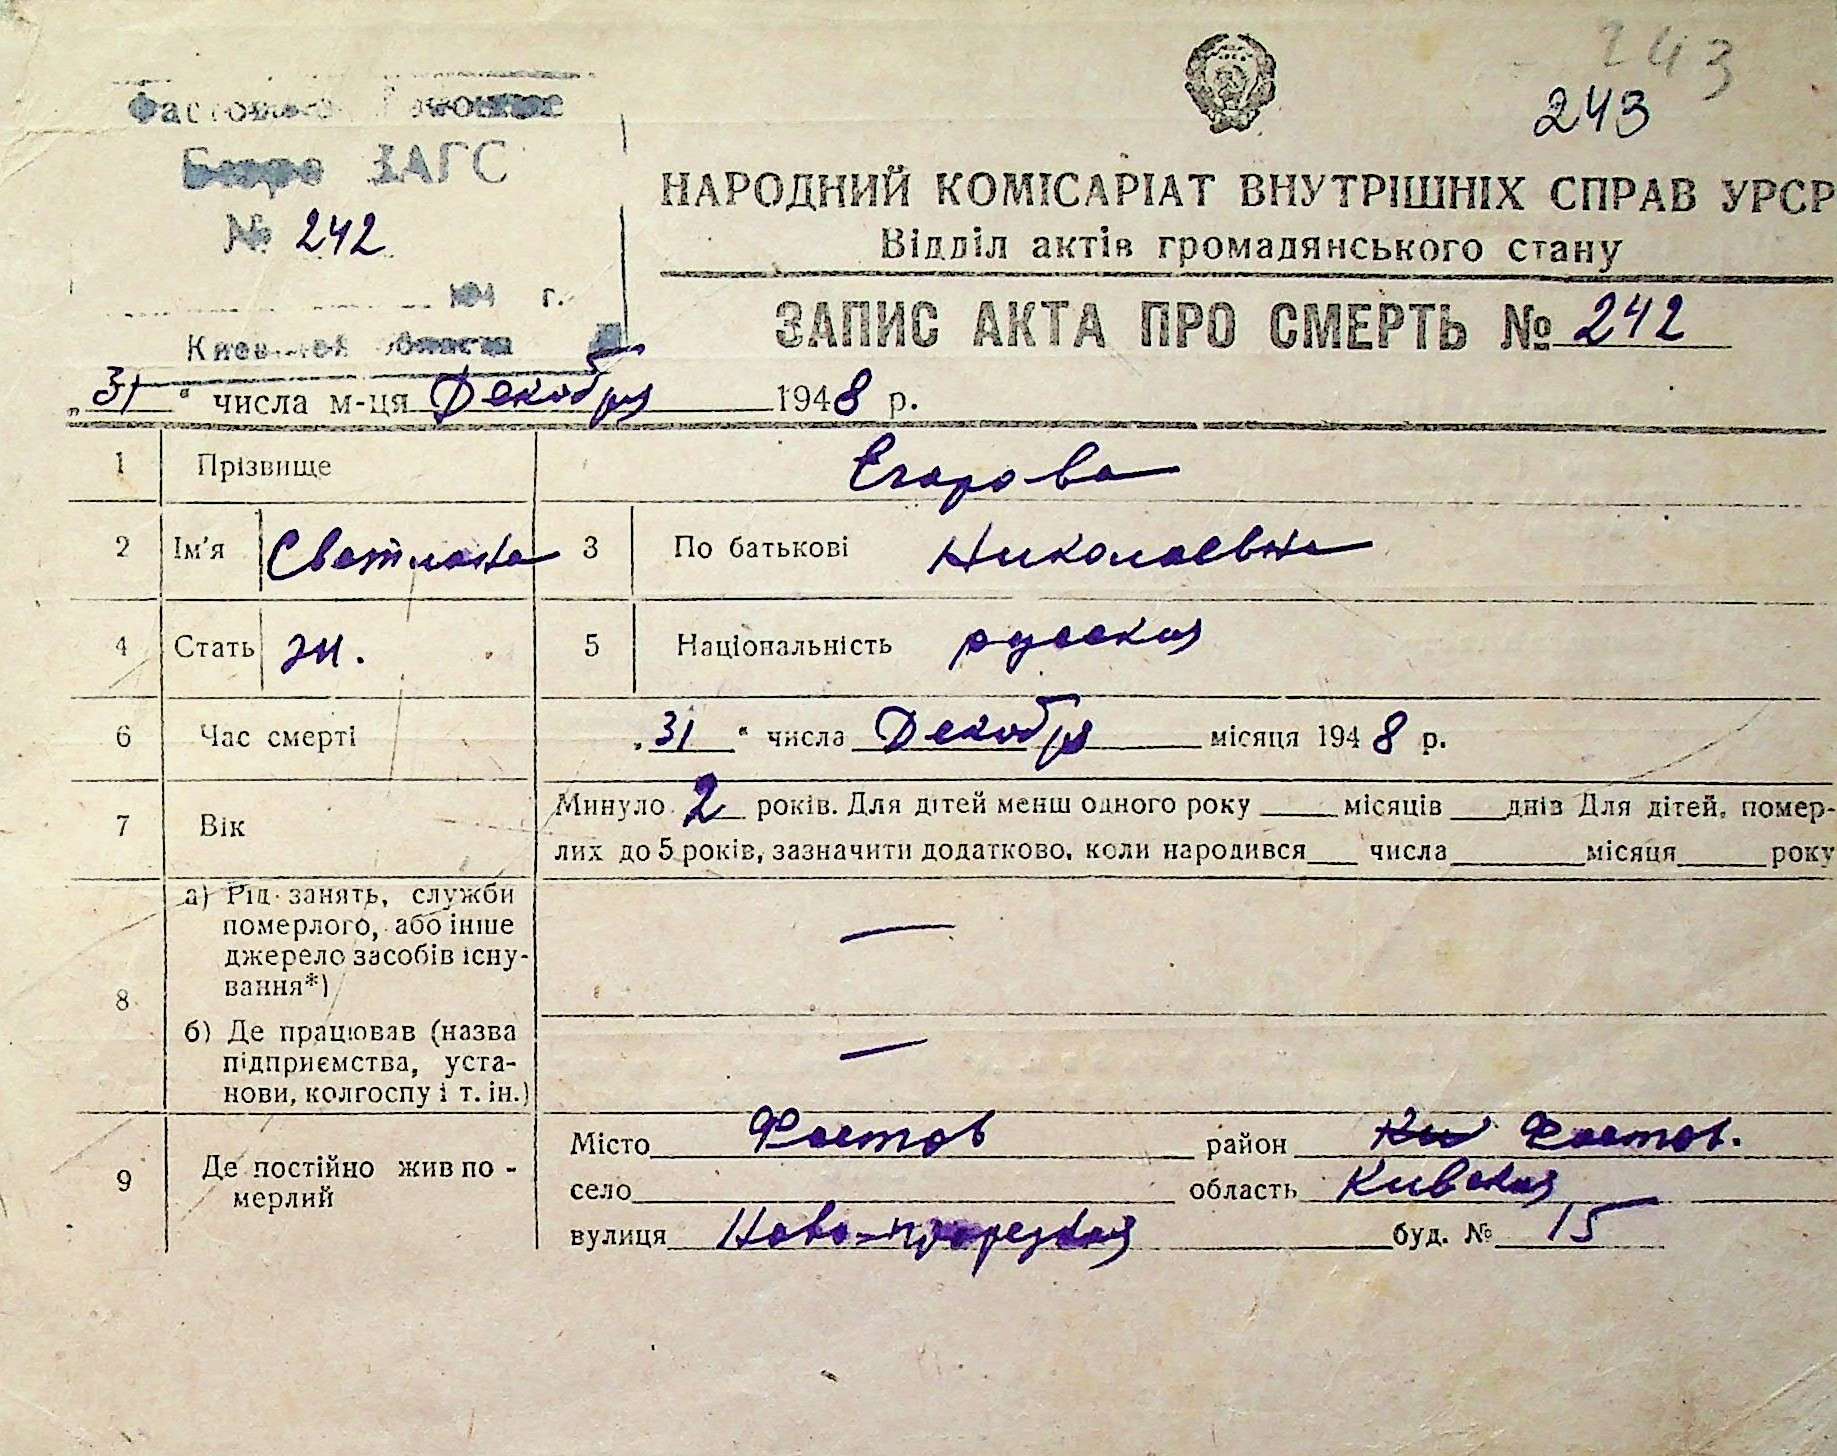 243
243
Бюро ЗАГС
№ 242
194 г.
НАРОДНИЙ КОМІСАРІАТ ВНУТРІШНІХ СПРАВ УРСР
Відділ актів громадянського стану
ЗАПИС АКТА ПРО СМЕРТЬ № 242
„31“ числа м-ця Декабря 1948 р.
1 Прізвище Егорова
2 Ім'я Светлана 3 По батькові Николаевна
4 Стать ж. 5 Національність русская
6 Час смерті „31“ числа Декабря місяця 1948 р.
7 Вік Минуло 2 років. Для дітей менш одного року ___ місяців ___ днів Для дітей, помер-
лих до 5 років, зазначити додатково, коли народився ___ числа ___ місяця ___ року
8 а) Рід занять, служби
померлого, або інше
джерело засобів існу-
вання*) —
б) Де працював (назва
підприємства, уста-
нови, колгоспу і т. ін.) —
9 Де постійно жив по-
мерлий
Місто Фастов район Фастов.
село область Кивская
вулиця буд. № 15